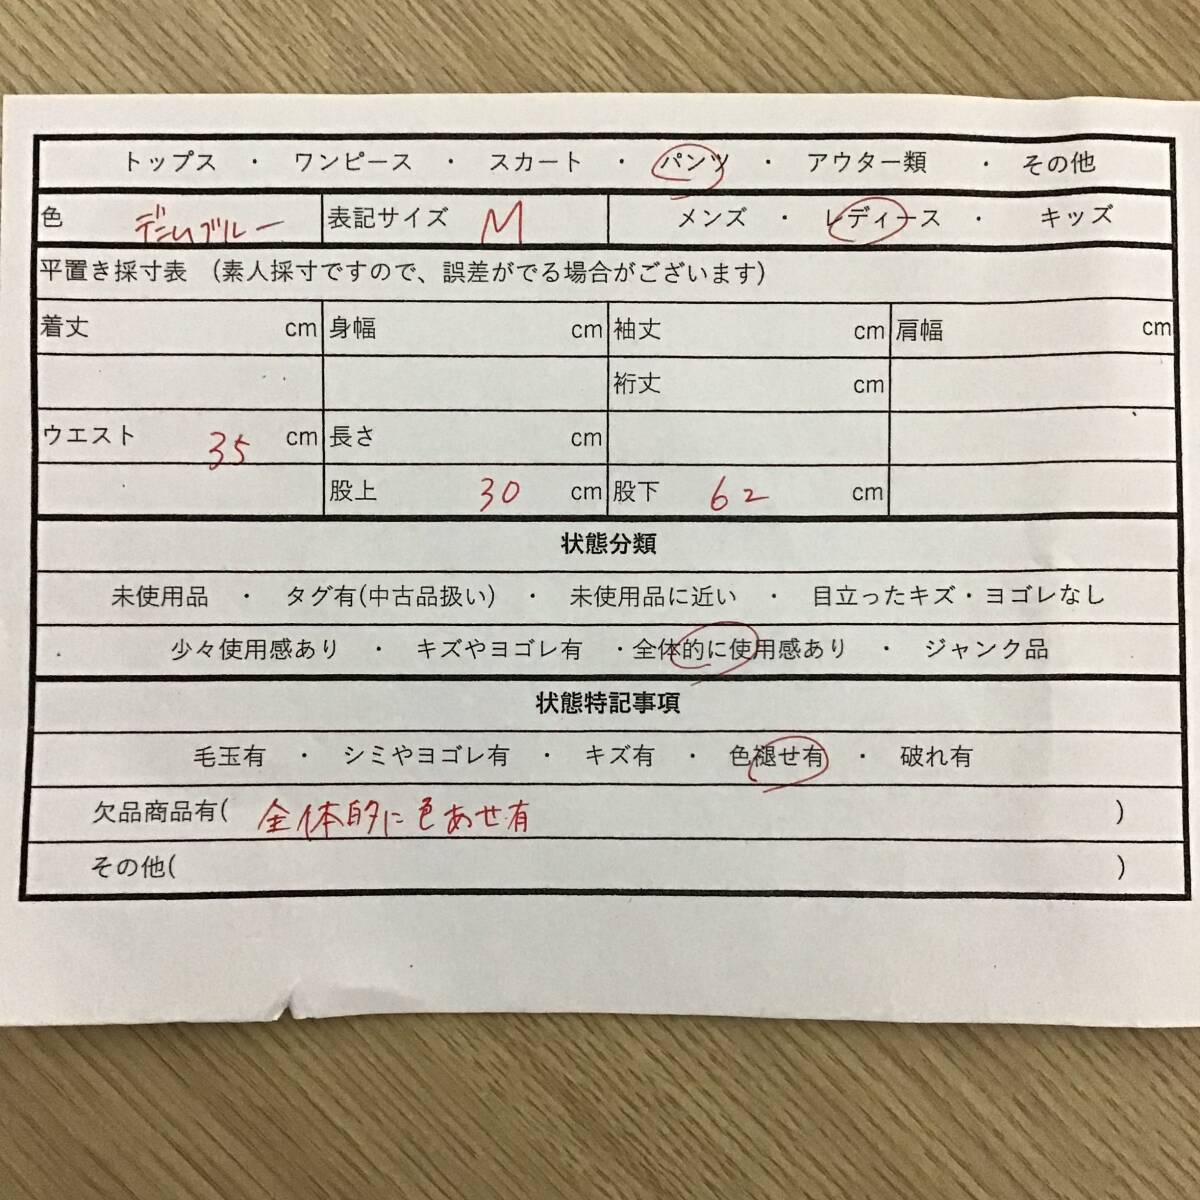 トップス ・ ワンピース ・ スカート ・ パンツ ・ アウター類 ・ その他
色 デニムブルー 表記サイズ M メンズ ・ レディース ・ キッズ
平置き採寸表 (素人採寸ですので、誤差がでる場合がございます)
着丈 cm 身幅 cm 袖丈 cm 肩幅 cm
裄丈 cm
ウエスト 35 cm 長さ cm
股上 30 cm 股下 62 cm
状態分類
未使用品 ・ タグ有(中古品扱い) ・ 未使用品に近い ・ 目立ったキズ・ヨゴレなし
少々使用感あり ・ キズやヨゴレ有 ・全体的に使用感あり ・ ジャンク品
状態特記事項
毛玉有 ・ シミやヨゴレ有 ・ キズ有 ・ 色褪せ有 ・ 破れ有
欠品商品有( 全体的に色あせ有 )
その他( )